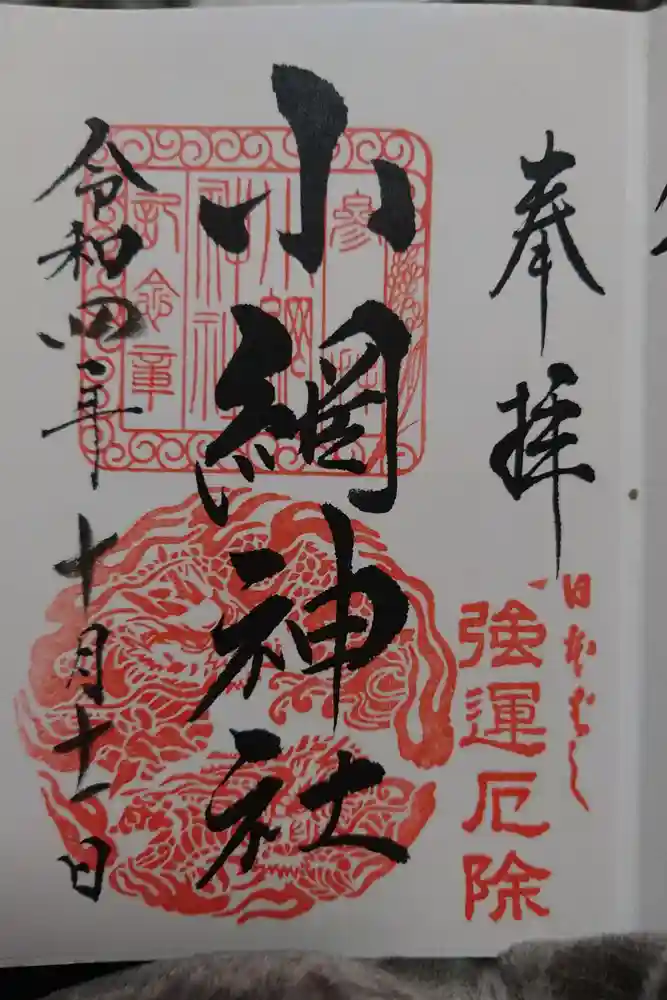 奉拝
日本ばし
強運厄除
小網神社
参拝
小網
神社
記念章
令和四年十月十一日